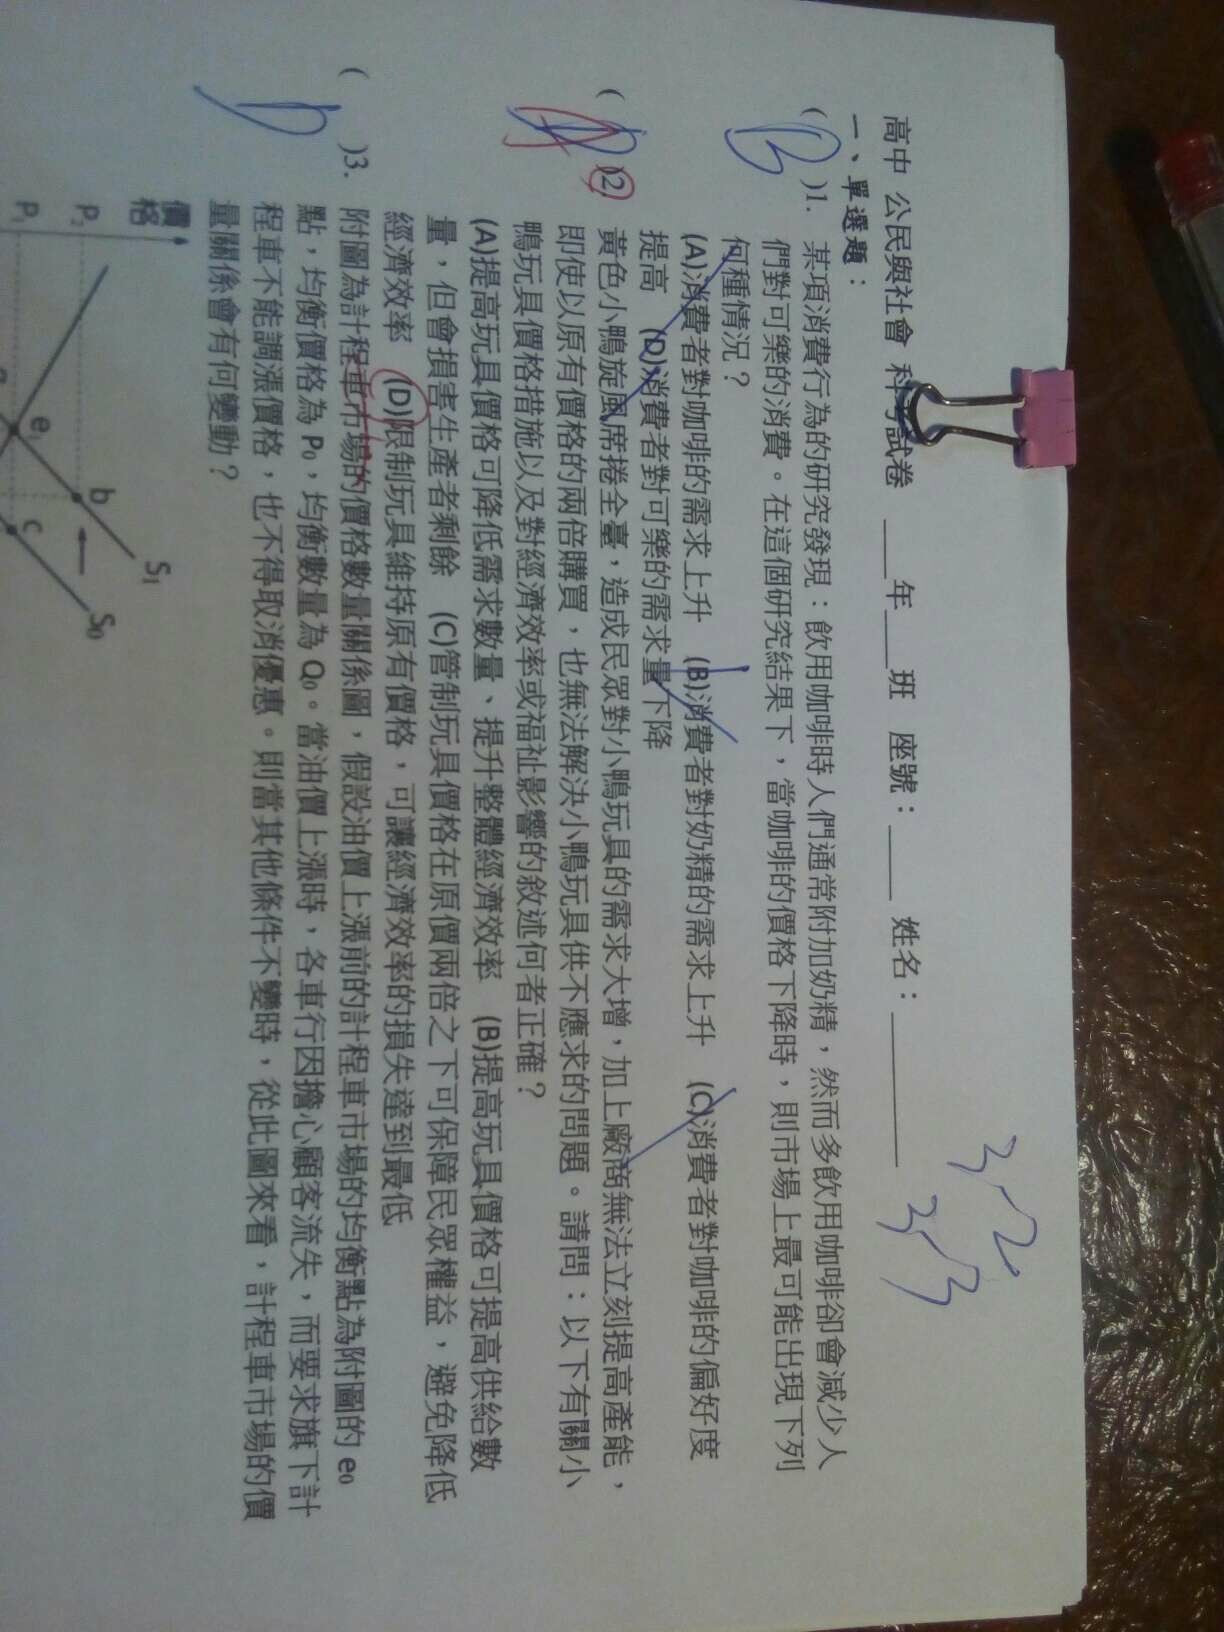 高中 公民與社會 科考試卷 ___年___班 座號：___ 姓名：______
32
33
一、單選題：
( B )1. 某項消費行為的研究發現：飲用咖啡時人們通常附加奶精，然而多飲用咖啡卻會減少人
們對可樂的消費。在這個研究結果下，當咖啡的價格下降時，則市場上最可能出現下列
何種情況？
(A)消費者對咖啡的需求上升 (B)消費者對奶精的需求上升 (C)消費者對咖啡的偏好度
提高 (D)消費者對可樂的需求量下降
( A )2. 黃色小鴨旋風席捲全臺，造成民眾對小鴨玩具的需求大增，加上廠商無法立刻提高產能，
即使以原有價格的兩倍購買，也無法解決小鴨玩具供不應求的問題。請問：以下有關小
鴨玩具價格措施以及對經濟效率或福祉影響的敘述何者正確？
(A)提高玩具價格可降低需求數量、提升整體經濟效率 (B)提高玩具價格可提高供給數
量，但會損害生產者剩餘 (C)管制玩具價格在原價兩倍之下可保障民眾權益，避免降低
經濟效率 (D)限制玩具維持原有價格，可讓經濟效率的損失達到最低
( D )3. 附圖為計程車市場的價格數量關係圖，假設油價上漲前的計程車市場的均衡點為附圖的 e₀
點，均衡價格為 P₀，均衡數量為 Q₀。當油價上漲時，各車行因擔心顧客流失，而要求旗下計
程車不能調漲價格，也不得取消優惠。則當其他條件不變時，從此圖來看，計程車市場的價
量關係會有何變動？
價格
S₁
S₀
P₂
b
P₁
e₁
c